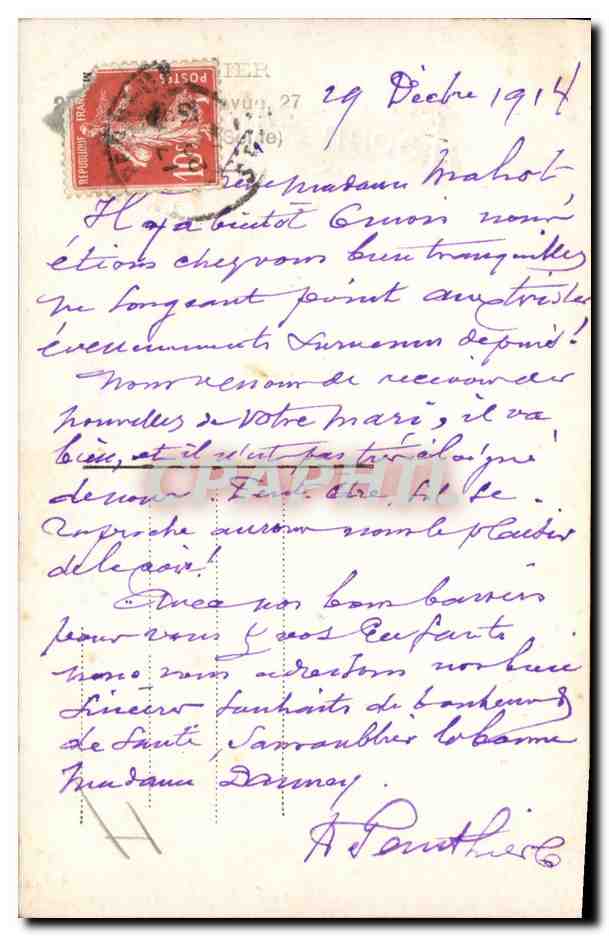 29 Décbre 1914
Madame Mahot,
Il y a bientôt 6 mois nous
étions chez vous bien tranquilles
ne songeant point aux tristes
évennements survenus depuis!
Nous venons de recevoir des
nouvelles de votre mari, il va
bien, et il n'est pas très éloigné
de nous. Peut-être, s'il se
raproche aurons nous le plaisir
de le voir!
Avec nos bons baisers
pour vous & vos Enfants
nous vous adressons nos bien
sincères souhaits de bonheur &
de santé, sans oublier la bonne
Madame
A Penthier
H
POSTES
REPUBLIQUE FRANÇAISE
10c
IER
27
CPAPHIL